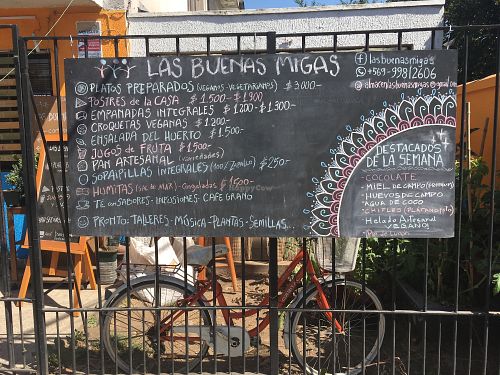 LAS BUENAS MIGAS
lasbuenasmigas
+569-99812606
PLATOS PREPARADOS (VEGANOS-VEGETARIANOS) $3000-
POSTRES de la CASA $1.500-$1.900
EMPANADAS INTEGRALES $1.200-$1.300-
CROQUETAS VEGANAS $1.200-
ENSALADA DEL HUERTO $1.500-
JUGOS de FRUTA $1.500-
PAN ARTESANAL (variedades)
SOPAIPILLAS INTEGRALES (100% Zapallo) $250-
HUMITAS Congeladas $1500-
TE con SABORES-INFUSIONES CAFE GRANO
PRONTO: TALLERES-MÚSICA-PLANTAS-SEMILLAS...
DESTACADOS
DE LA SEMANA
-COCOLATE
-MIEL DE CAMPO
-HUEVOS DE CAMPO
-AGUA DE COCO
-CHIFLES
-Helado Artesanal
VEGANO!